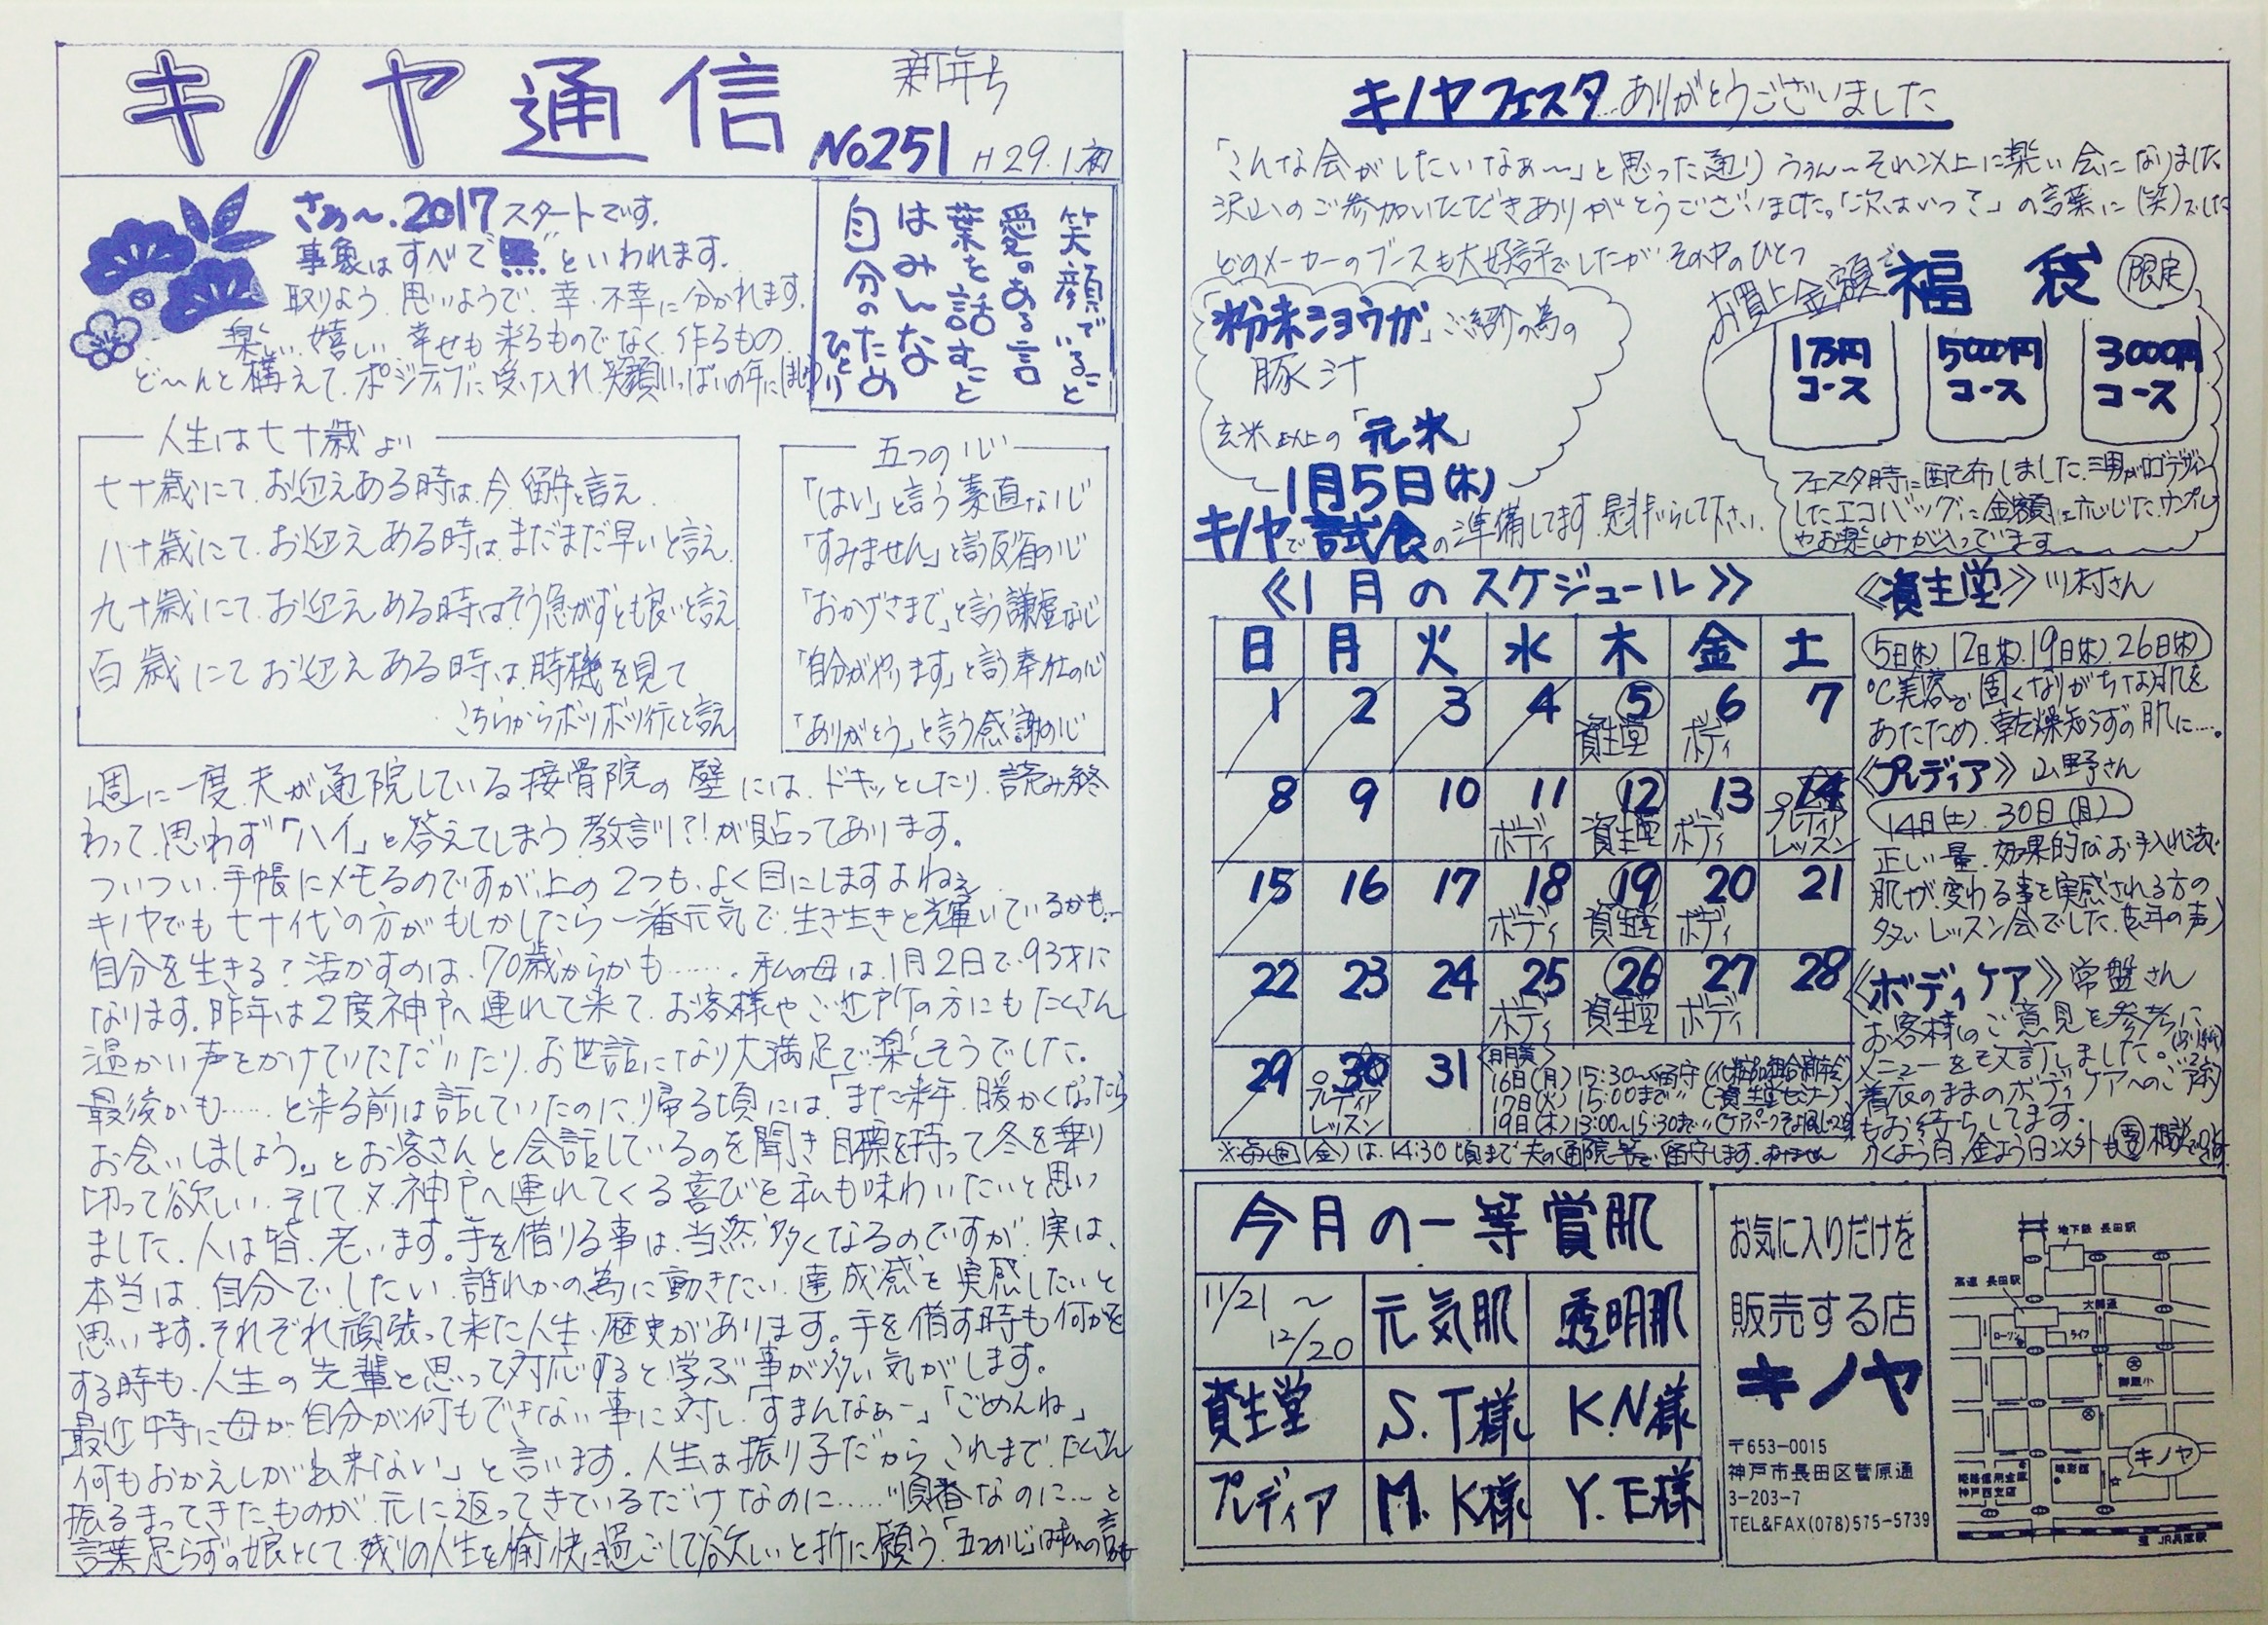 キノヤ通信
新年号
No251 H29.1.初
さぁ〜.2017スタートです.
事象はすべて"無"といわれます.
取りよう.思いようで.幸.不幸に分かれます.
楽しい.嬉しい.幸せも来るものでなく.作るもの
ど〜んと構えて.ポジティブに受け入れ.笑顔いっぱいの年に
笑顔でいること
愛のある言
葉を話すこと
はみんな
自分のため
ひとり
人生は七十歳より
七十歳にて.お迎えある時は.今留守と言え.
八十歳にて.お迎えある時は.まだまだ早いと言え.
九十歳にて.お迎えある時はそう急がずとも良いと言え.
百歳にてお迎えある時は.時機を見て
こちらからボツボツ行くと言え
五つの心
「はい」と言う素直な心
「すみません」と言う反省の心
「おかげさまで」と言う謙虚な心
「自分がやります」と言う奉仕の心
「ありがとう」と言う感謝の心
週に一度.夫が通院している接骨院の壁には.ドキッとしたり.読み終
わって.思わず「ハイ」と答えてしまう教訓?!が貼ってあります.
ついつい.手帳にメモるのですが.上の2つも.よく目にしますよねぇ
キノヤでも七十代の方がもしかしたら一番元気で.生き生きと輝いているかも..
自分を生きる?活かすのは.70歳からかも.......私の母は.1月2日で.93才に
なります.昨年は2度神戸へ連れて来て.お客様やご近所の方にもたくさん
温かい声をかけていただいたり.お世話になり大満足で.楽しそうでした.
最後かも......と来る前は話していたのに.帰る頃には.「また来年.暖かくなったら
お会いしましょう。」とお客さんと会話しているのを聞き目標を持って冬を乗り
切って欲しい.そして又.神戸へ連れてくる喜びを私も味わいたいと思い
ました.人は皆.老います。手を借りる事は.当然多くなるのですが.実は、
本当は.自分で.したい.誰れかの為に動きたい.達成感を実感したいと
思います.それぞれ頑張って来た人生.歴史があります。手を借す時も何かを
する時も.人生の先輩と思って対応すると.学ぶ事が多い気がします。
最近時に母が自分が何もできない事に対し.「すまんなぁー」「ごめんね」
何もおかえしが出来ない」と言います.人生は振り子だから.これまで.たくさん
振るまってきたものが.元に返ってきているだけなのに.....順番なのに...と
言葉足らずの娘として.残りの人生を愉快に過ごして欲しいと折に願う.「五つの心」は
キノヤフェスタ.ありがとうございました
「こんな会がしたいなぁ〜」と思った通り うぅん〜それ以上に楽しい会になりました
沢山のご参加いただきありがとうございました。「次はいつ?」の言葉に(笑)でした
どのメーカーのブースも大好評でしたが その中のひとつ
「粉末ショウガ」ご紹介の為の
豚汁
玄米以上の「元米」
1月5日(木)
キノヤで試食の準備してます.是非いらして下さい.
お買上金額で福袋 限定
1万円
コース
5000円
コース
3000円
コース
フェスタ時に配布しました.三男がロゴデザイン
したエコバッグに金額に応じた.サンプル
やお楽しみが入っています
《1月のスケジュール》
日 月 火 水 木 金 土
1 2 3 4 5 6 7
資生堂 ボディ
8 9 10 11 12 13 14
ボディ 資生堂 ボディ プレディア
レッスン
15 16 17 18 19 20 21
ボディ 資生堂 ボディ
22 23 24 25 26 27 28
ボディ 資生堂 ボディ
29 30 31
プレディア
レッスン
16日(月)15:30〜留守(化粧品組合新年会)
17日(火)15:00まで〃(資生堂セミナー)
19日(木)13:00〜15:30まで〃
※毎週(金)は.14:30頃まで夫の通院等で留守します.すみません
《資生堂》川村さん
5日(木)12日(木).19日(木).26日(木)
℃美容で固くなりがちな肌を
あたため.乾燥知らずの肌に....
《プレディア》山野さん
14日(土).30日(月)
正しい量.効果的なお手入れ法で
肌が変わる事を実感される方の
多いレッスン会でした.(去年の声)
《ボディケア》常盤さん
お客様のご意見を参考に
メニューを改訂しました。
着衣のままのボディケアへのご予約
もお待ちしてます.
水よう日.金よう日以外も要相談で
今月の一等賞肌
11/21〜12/20 元気肌 透明肌
資生堂 S.T様 K.N様
プレディア M.K様 Y.E様
お気に入りだけを
販売する店
キノヤ
〒653-0015
神戸市長田区菅原通
3-203-7
TEL&FAX(078)575-5739
地下鉄 長田駅
高速 長田駅
大開通
ローソン
ライフ
御蔵小
キノヤ
姫路信用金庫
神戸西支店
JR兵庫駅